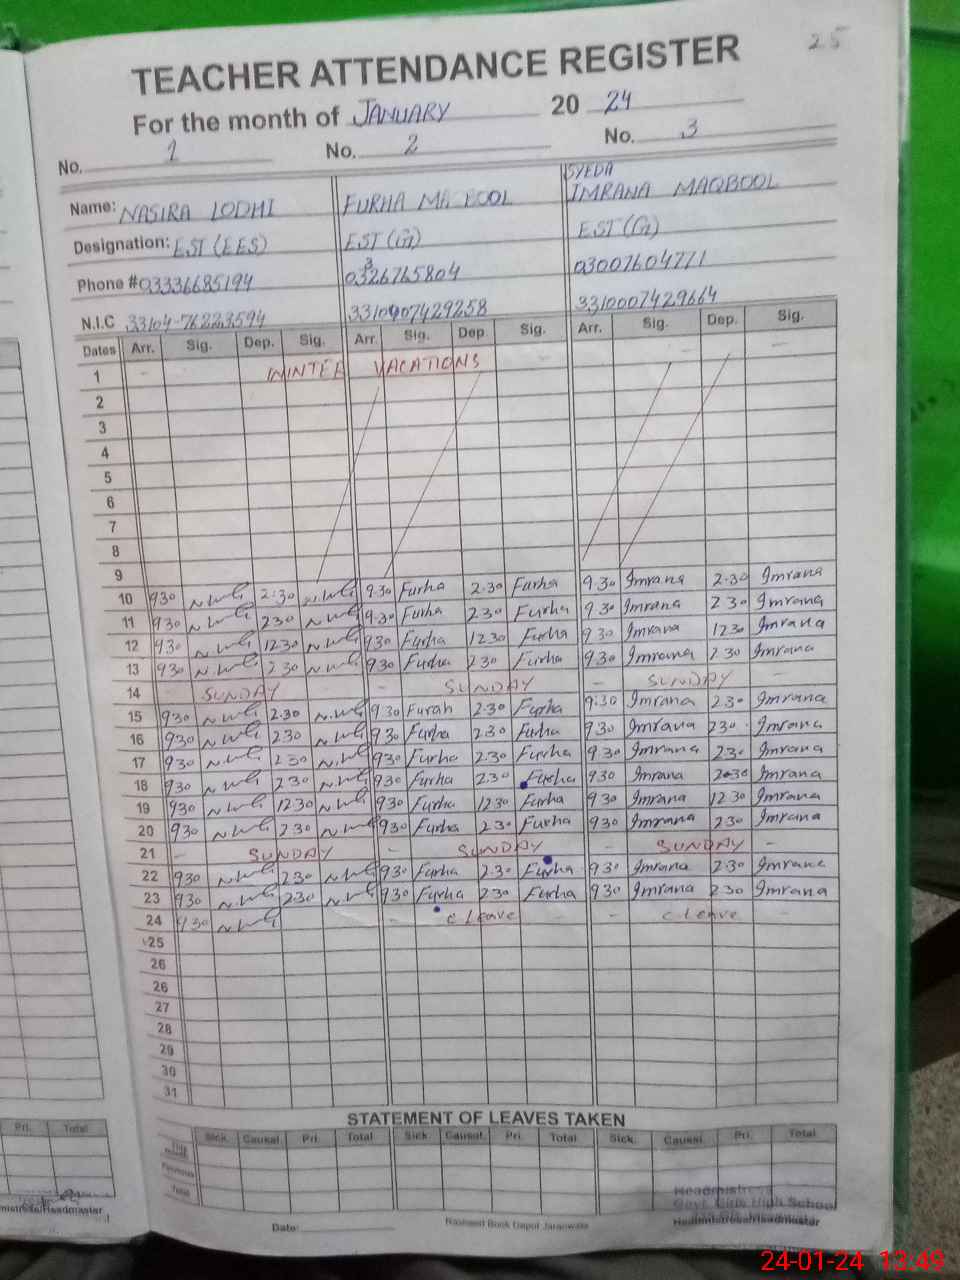 25
TEACHER ATTENDANCE REGISTER
For the month of JANUARY 20 24
No. 1 No. 2 No. 3
Name: NASIRA LODHI FURHA MAQBOOL SYEDA IMRANA MAQBOOL
Designation: EST (EES) EST (G) EST (G)
Phone # 03336685194 03007604771
N.I.C 33104-76223594 3310007429664
Dates Arr. Sig. Dep. Sig. Arr. Sig. Dep. Sig. Arr. Sig. Dep. Sig.
1 WINTER VACATIONS
2
3
4
5
6
7
8
9
10 930 2:30 9.30 Furha 2.30 Furha 9.30 Imrana 2.30 Imrana
11 930 230 9.30 Furha 230 Furha 9.30 Imrana 230 Imrana
12 930 1230 930 Furha 1230 Furha 930 Imrana 1230 Imrana
13 930 230 930 Furha 230 Furha 930 Imrana 230 Imrana
14 - SUNDAY - SUNDAY - SUNDAY -
15 930 2.30 930 Furah 2.30 Furha 9:30 Imrana 2.30 Imrana
16 930 230 930 Furha 230 Furha 930 Imrana 230 Imrana
17 930 230 930 Furha 2.30 Furha 930 Imrana 230 Imrana
18 930 230 930 Furha 230 Furha 930 Imrana 2.30 Imrana
19 930 1230 930 Furha 1230 Furha 930 Imrana 1230 Imrana
20 930 230 930 Furha 230 Furha 930 Imrana 230 Imrana
21 - SUNDAY - SUNDAY - SUNDAY -
22 930 230 930 Furha 2.30 Furha 930 Imrana 2.30 Imrana
23 930 230 930 Furha 230 Furha 930 Imrana 230 Imrana
24 930 - c leave - c leave -
25
26
26
27
28
29
30
31
STATEMENT OF LEAVES TAKEN
Sick. Causal. Pri. Total Sick Causal. Pri. Total Sick. Causal. Pri. Total
Pri. Total
Total
Headmistress
Govt. Girls High School
Headmistress/Headmaster
Date:
Book Depot Jaranwala
24-01-24 13:49